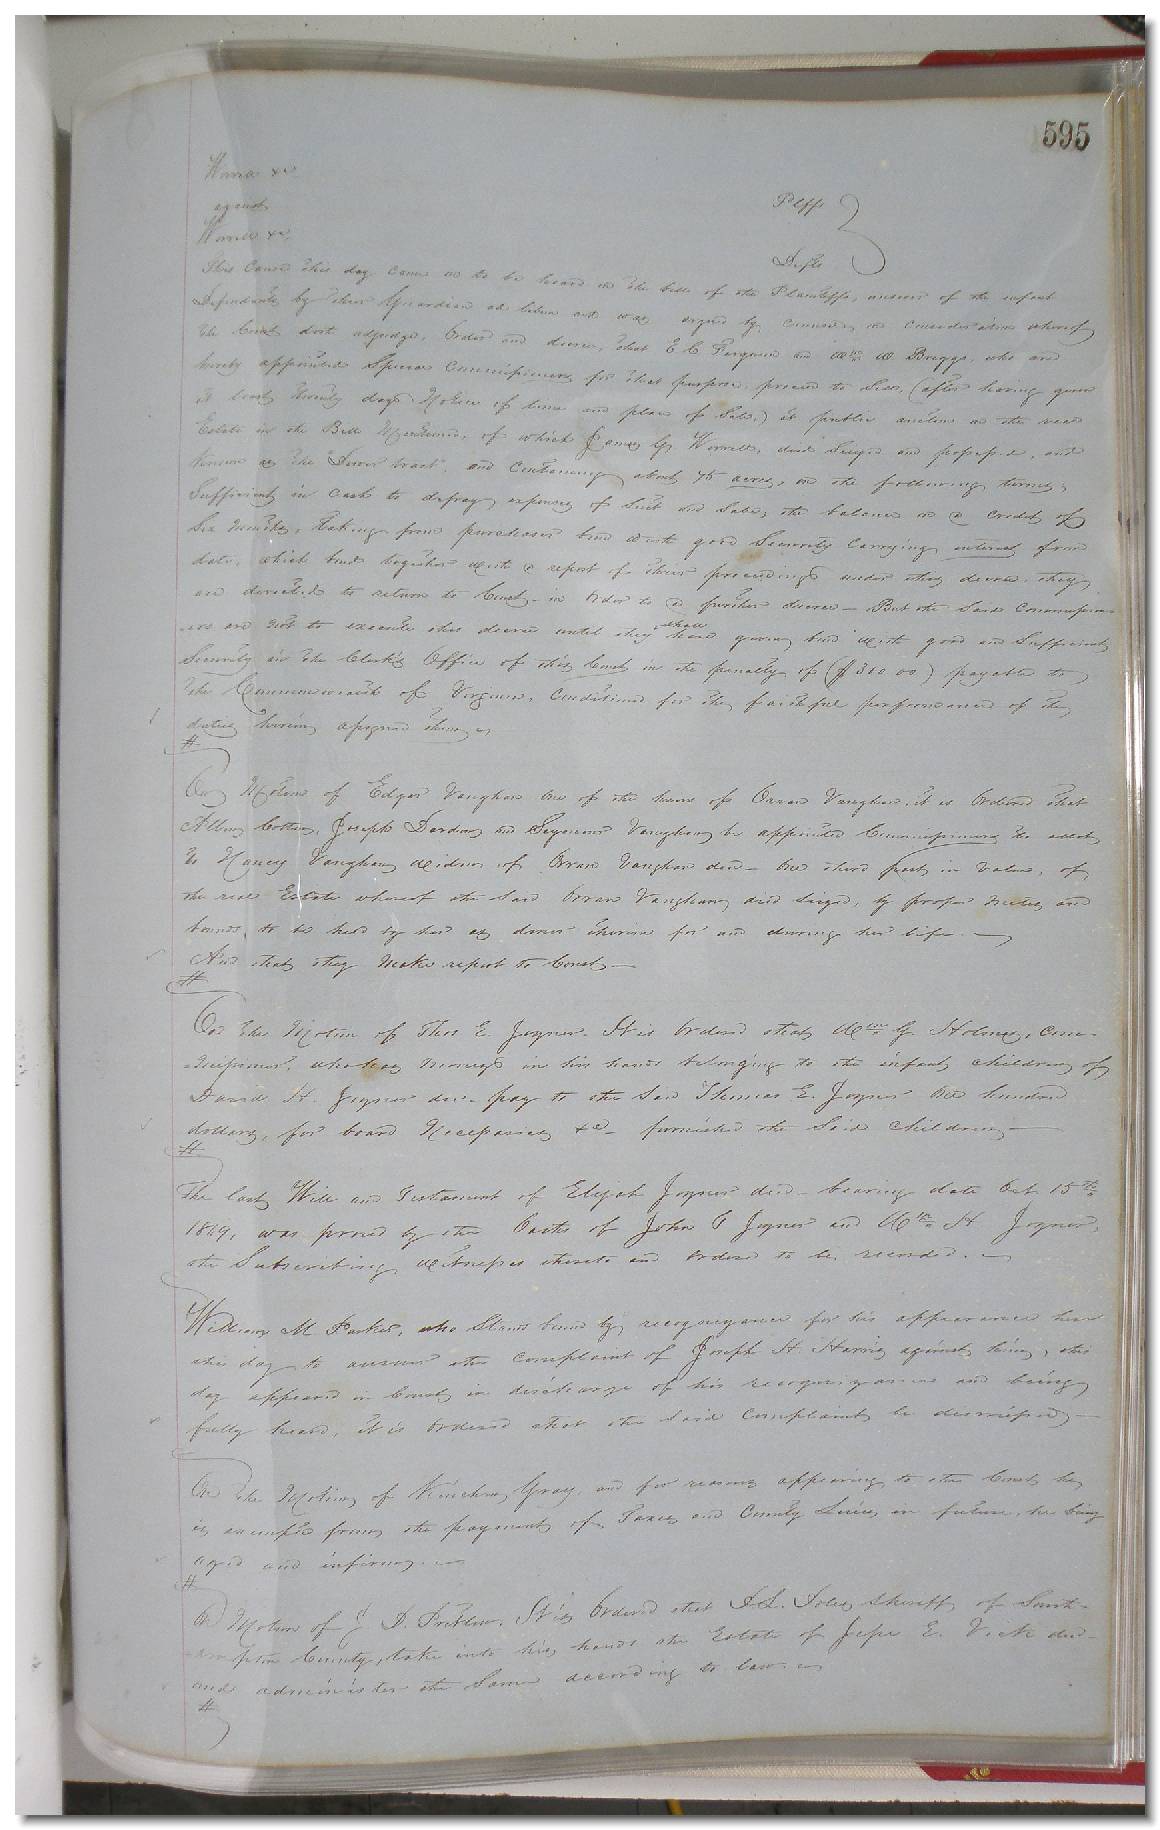 595
Worrell &c
against
Plffs
Worrell &c
Defts
This cause this day came on to be heard on the bill of the Plaintiffs, answer of the infant
Defendants by their Guardian ad litem and was argued by counsel, on consideration whereof
the Court doth adjudge, Order and decree, that E C Ferguson and Wm W Briggs, who are
hereby appointed Special Commissioners for that purpose proceed to Sell, (after having given
at least twenty days Notice of time and place of Sale,) at public auction the real
Estate in the Bill Mentioned, of which James G Worrell, died Siezed and possessed, and
Known as the tract", and Containing about 75 acres, on the following terms,
Sufficient in Cash to defray expenses of Suit and Sale, the balance on a Credit of
Six Months, taking from purchaser bond with good Security Carrying interest from
date, which bond together with a report of their proceedings under this decree they
are directed to return to Court in order to a further decree – But the Said Commission-
ers are not to execute this decree until they shall have given bond with good and Sufficient
Security in the Clerk's Office of this Court in the penalty of ($300.00) payable to
the Commonwealth of Virginia, Conditioned for the faithful performance of the
duties herein assigned them
On Motion of Edgar Vaughan one of the heirs of Orran Vaughan, it is Ordered that
Cotton, Joseph Darden and Seymour Vaughan be appointed Commissioners to allot
to Nancy Vaughan widow of Orran Vaughan decd – One third part in Value, of
the real Estate whereof the Said Orran Vaughan died Siezed, by proper Metes and
bounds, to be held by her as dower therein for and during her life –
And that they Make report to Court –
On the Motion of Thos E. Joyner. It is Ordered that Wm G Holmes, Com-
missioner, who has moneys in his hands belonging to the infant children of
David H. Joyner decd pay to the Said Thomas E. Joyner One hundred
dollars, for board Necessaries &c – furnished the Said children –
The last Will and Testament of Elijah Joyner decd – bearing date Oct 15th
1849, was proved by the Oaths of John T Joyner and Wm H Joyner,
the Subscribing Witnesses thereto and Ordered to be recorded. –
William M Parker, who Stands bound by recognizance for his appearance here
this day to answer the complaint of Joseph H. Harris against him, this
day appeared in Court in discharge of his recognizance and being
fully heard, it is Ordered that the Said Complaint be dismissed –
On the Motion of Kinchen Gray, and for reasons appearing to the Court he
is exempted from the payment of Taxes and County Levies in future, he being
aged and infirm. –
On Motion of J. D. Pretlow. It is Ordered that Sheriff of South-
ampton County, take into his hands the Estate of Jesse E. Vick decd –
and administer the Same according to law